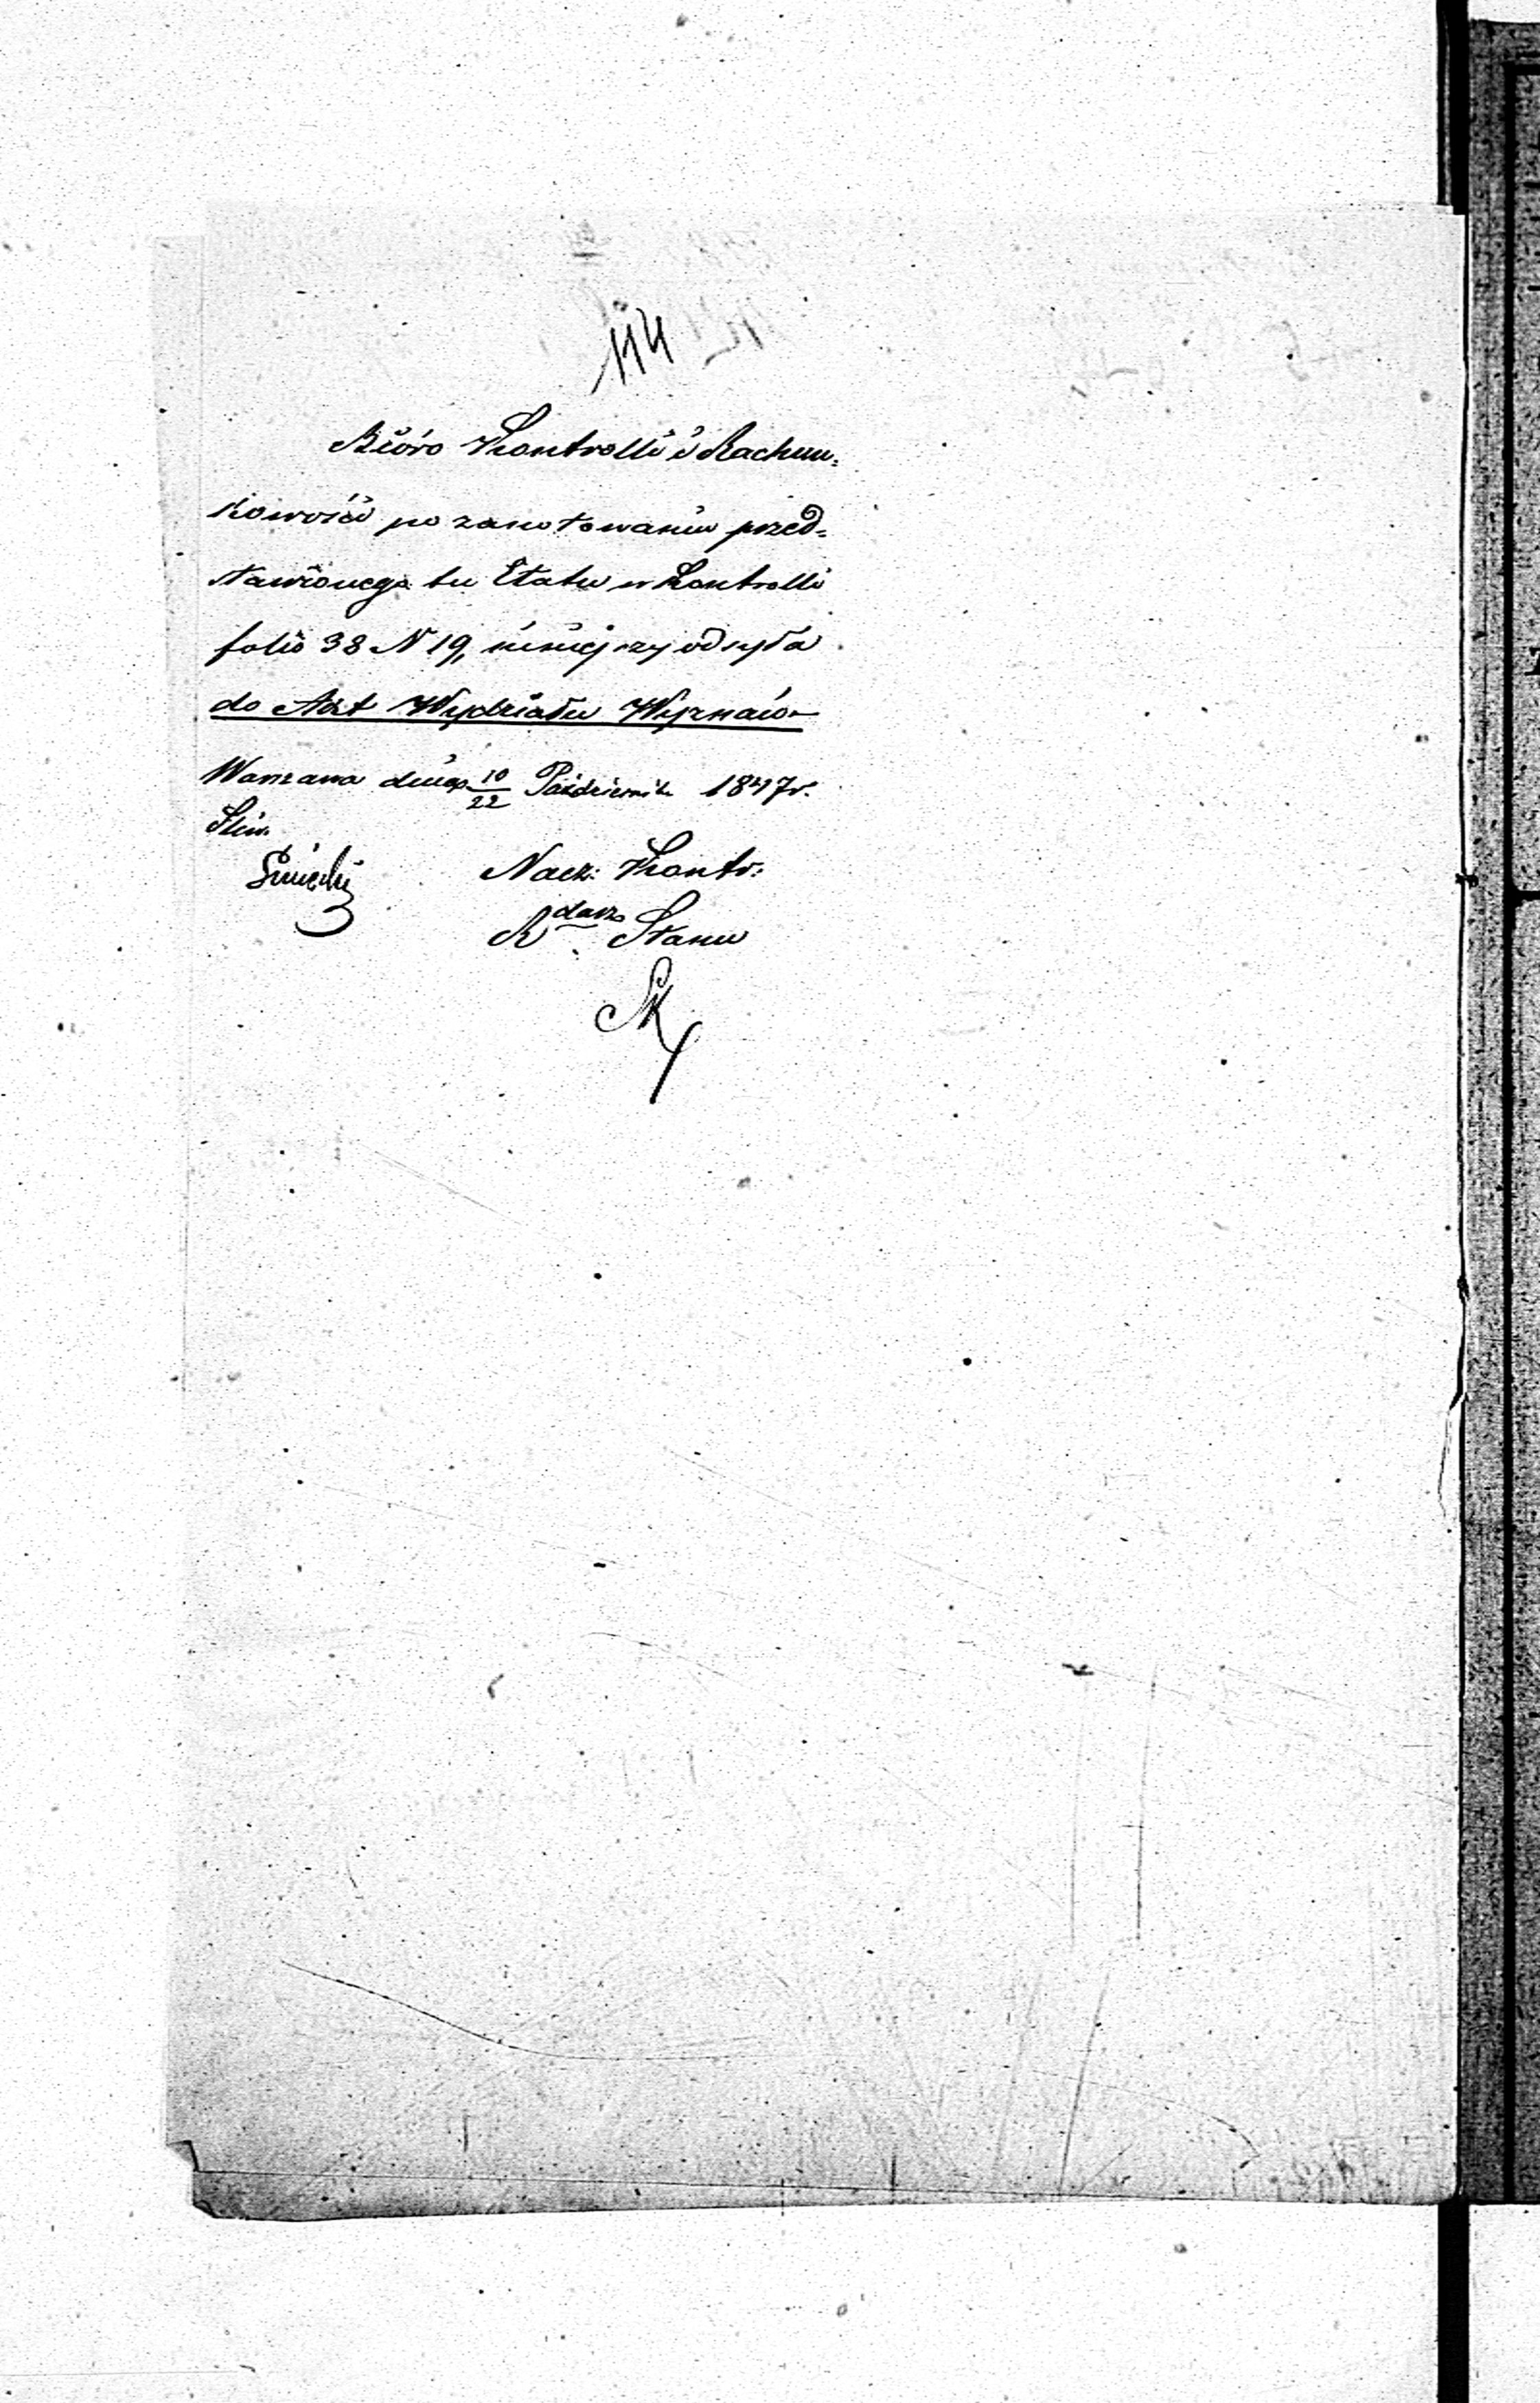 114
Bióro Kontrolli i Rachun=
kowości po zanotowaniu przed=
stawionego tu Etatu w Kontrolli
folio 38 N 19, niniejszy odsyła
do Akt Wydziału Wyznań
Warszawa dnia 10/22 Październik 1847 r.
Nacz: Kontr:
R darz Stanu